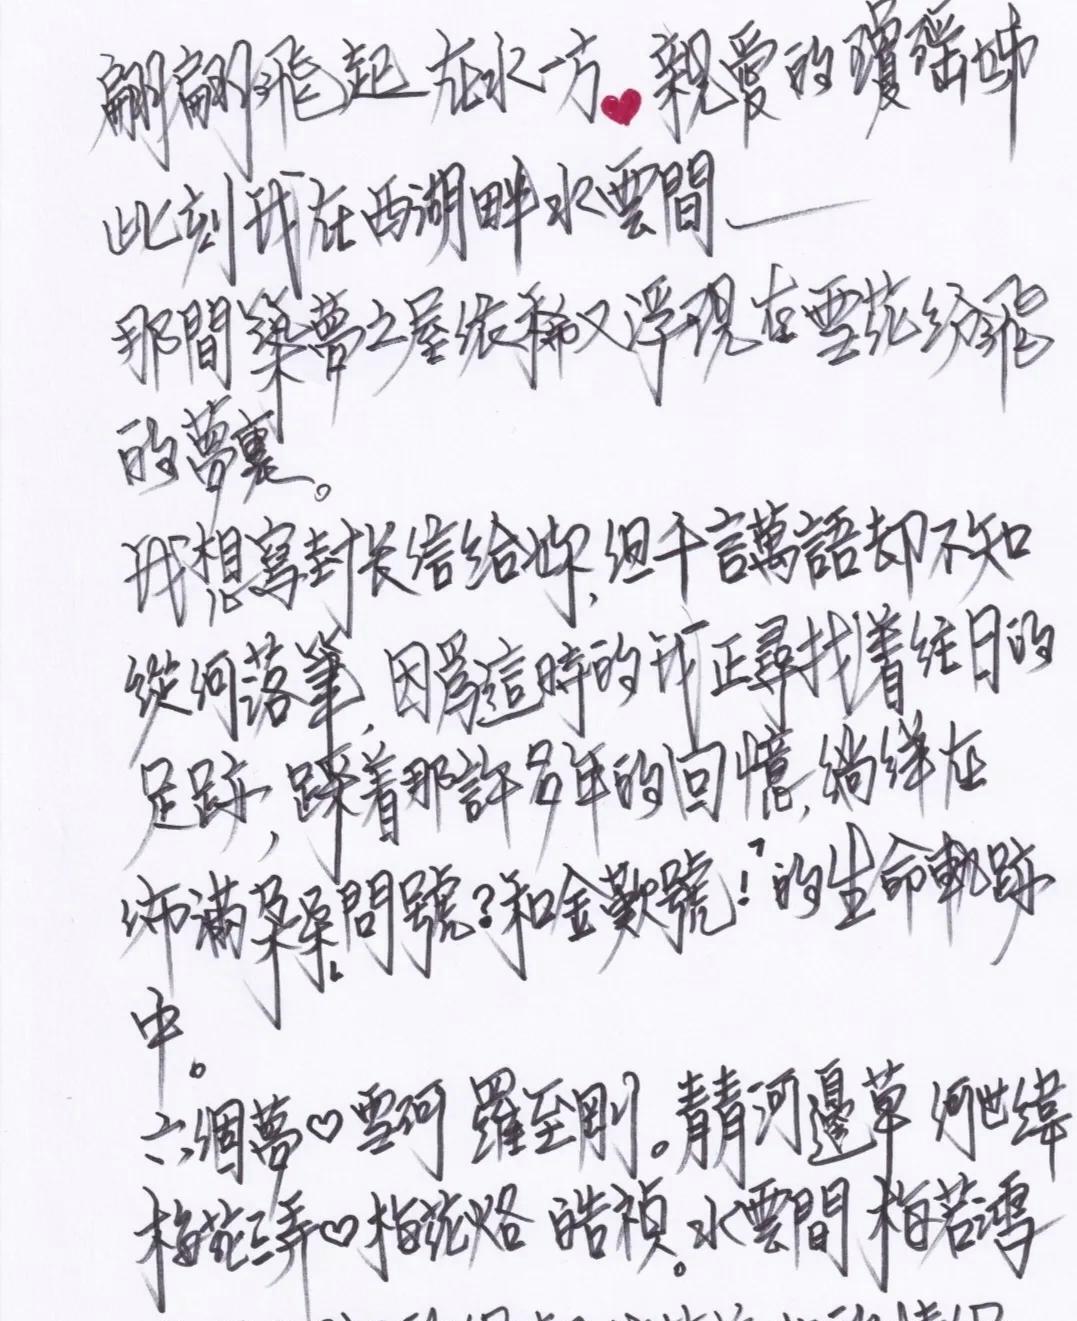 翩翩飛起 在水一方 親愛的瓊瑤姊
此刻我在西湖畔水雲間——
那間築夢之屋依稀又浮現在雪花紛飛
的夢裏。
我想寫封长信給妳,但千言萬語却不知
從何落筆,因爲這時的我正尋找着往日的
足跡,踩着那許多年的回憶,徜徉在
佈滿朵朵問號?和金歎號!的生命軌跡
中。
六個夢♡雪珂 羅至剛。青青河邊草 何世緯
梅花三弄♡梅花烙 皓禎。水雲間 梅若鴻